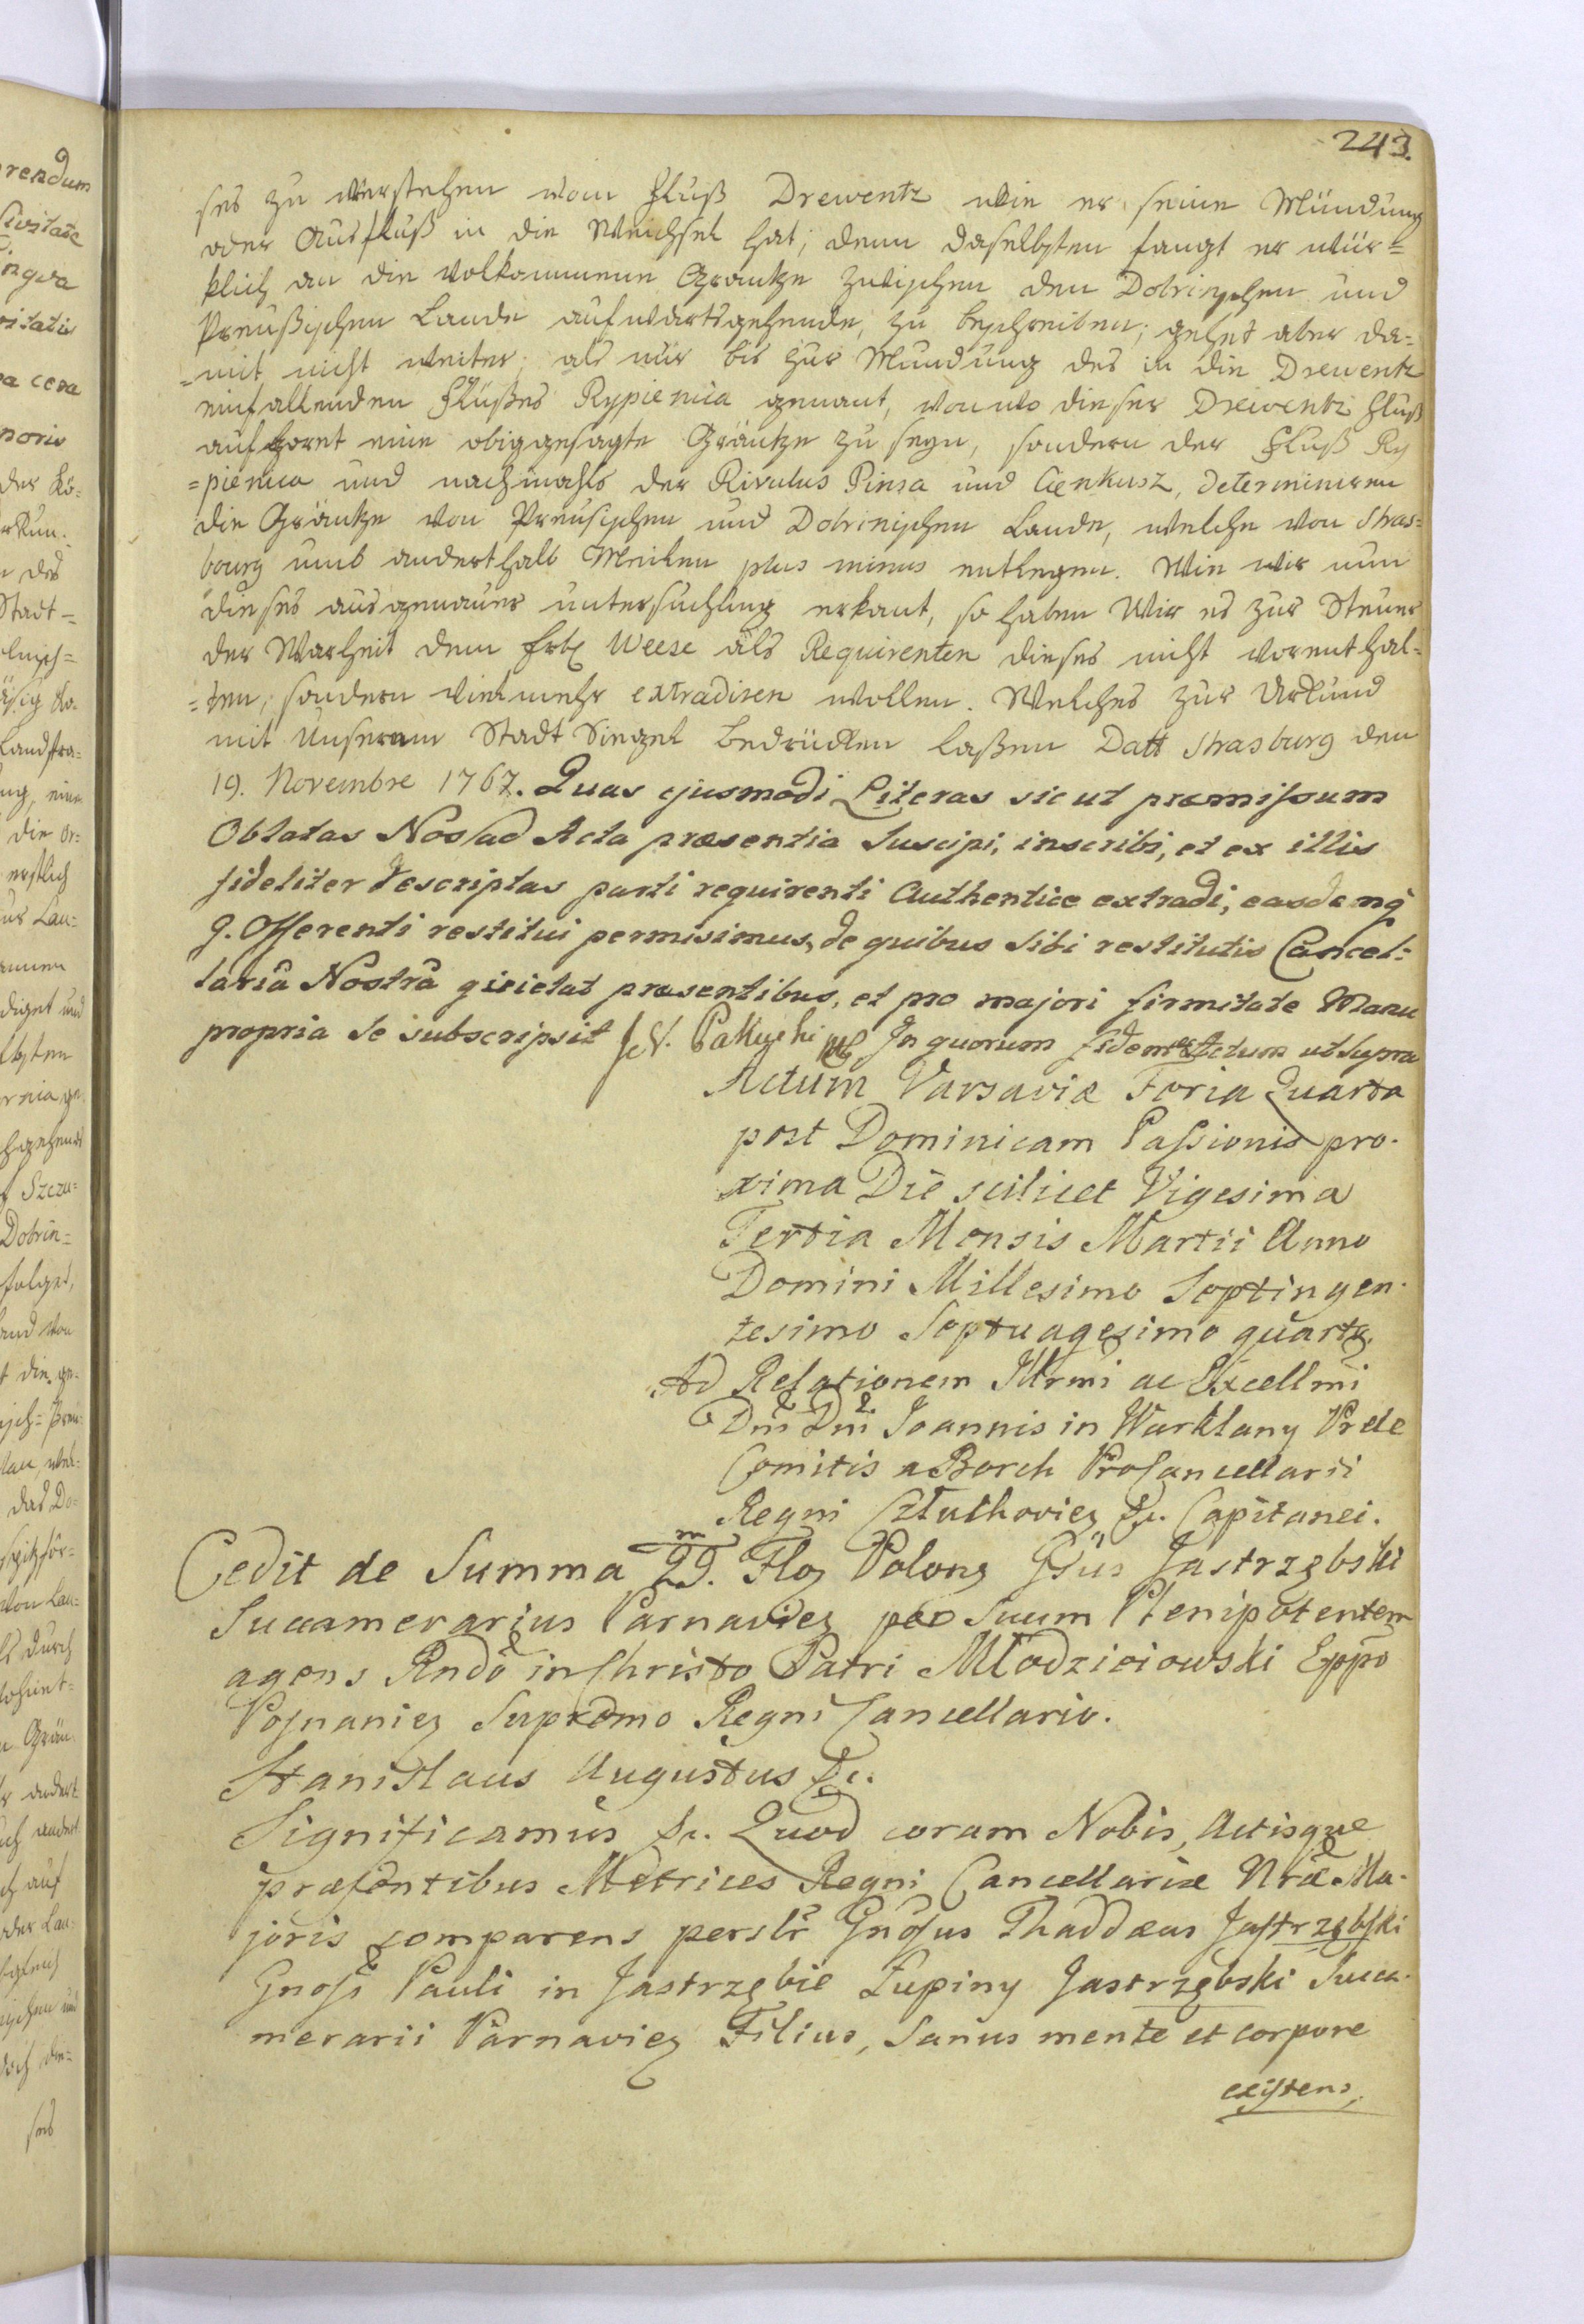 243.
ses zu verstehen vom Fluß Drewentz wie er seine Mündung
oder Ausfluß in die Weichsel hat; denn daselbsten fangt er wür=
klich an die Volkommene Gräntze zwischen den Dobrinschen und
Preußischen Lande aufwartsgehende, zu beschreiben; gehet aber da=
=mit nicht weiter, als nur bis zur Mundung des in die Drewentz
einfallenden Flußes Rypienica genant, von wo dieser Drewentz Fluß
aufhoret eine obiggesagte Gräntze zu seyn, sondern der Fluß Ry
=pienica und nachmahls der Rivulus Pinsa und Cienkusz, determiniren
die Gräntze von Preusischen und Dobrinischen Lande, welche von Stras=
bourg umb anderthalb Meilen plus minus entlegen. Wie wir nun
dieses aus genauer untersuchung erkant, so haben Wir es zur Steuer
der Warheit dem Weese als Requirenten dieses nicht vorenthal=
=ten, sondern vielmehr extradiren wollen. Welches zur Urkund
mit Unserem Stadt Siegel bedrücken laßen Datt Strasburg den
19. Novembre 1767. Quas ejusmodi Literas sicut præmissum
Oblatas Nos ad Acta præsentia Suscipi, inscribi, et ex illis
fideliter descriptas parti requirenti Authentice extradi, easdemq̃
g. Offerenti restitui permisimus, de quibus Sibi restitutis Cancel=
lariã Nostrã qvietat præsentibus, et pro majori firmitate Manu
propria Se subscripsit In quorum fidem Actum ut Supra
Actum Varsaviæ Feria Quarta
post Dominicam Passionis pro-
xima Die scilicet Vigesima
Tertia Mensis Martii Anno
Domini Millesimo Septingen-
tesimo Septuagesimo quarto.
Ad Relationem Illrmi ac Excellmi
Dni Dni Joannis in Warklany Prele
Comitis a Borch ProCancellarii
Regni Człuchovieñ &c. Capitanei.
Cedit de Summa 29.m Floȝ Polonȝ Gsus Jastrzębski
Succamerarius Parnavieȝ per Suum Plenipotentem
agens Rndo in Christo Patri Młodzieiowski Eppo
Posnanieȝ Supremo Regni Cancellario.
Stanislaus Augustus &c.
Significamus &c. Quod coram Nobis, Actisque
præsentibus Metrices Regni Cancellariæ Nræ Ma-
joris comparens perslr Gnosus Thaddæus Jastrzębski
Gnosi Pauli in Jastrzębie Łupiny Jastrzębski Succa-
merarii Parnavieȝ Filius, Sanus mente et corpore
existens,